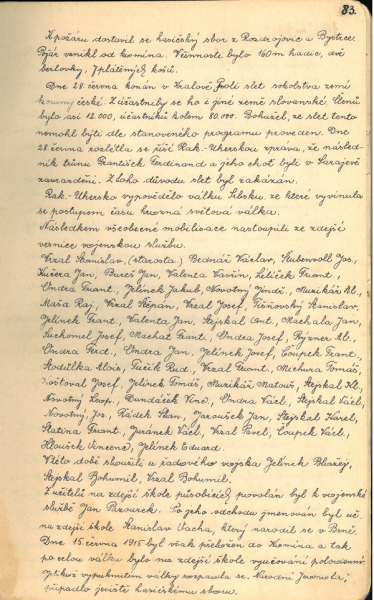 83.
K požáru dostavil se hasičský sbor z Rozdrojovic a Bystrce
Požár vznikl od komína. V činnosti bylo 160 m hadic, dvě
berlovky, 7 plátěných košů.
Dne 28. června konán v Králově Poli slet sokolstva zemí
koruny české. Zúčastnily se ho i jiné země slovanské. Členů
bylo asi 12.000, účastníků kolem 80.000. Bohužel, ze slet tento
nemohl býti dle stanoveného programu proveden. Dne
28. června rozlétla se říší Rak.-Uherskou zpráva, že násled-
ník trůnu František Ferdinand a jeho choť byli v Sarajevě
zavražděni. Z toho důvodu slet byl zakázán.
Rak.-Uhersko vypovědělo válku Srbsku, ze které vyvinula
se postupem času hrozná světová válka.
Následkem všeobecné mobilisace nastoupili ze zdejší
vesnice vojenskou službu.
Vrzal Stanislav, (starosta), Bednář Václav, Stubenvoll Jos,
Kučera Jan, Bureš Jan, Valenta Vavřín, Frant.,
Ondra Frant., Jelínek Jakub, Novotný Jindř., Muzikář Al.,
Maša Raj., Vrzal Štěpán, Vrzal Josef, Tišňovský Stanislav,
Jelínek Frant., Valenta Jan, Stejskal Ant., Machala Jan,
Suchomel Josef, Machat Frant., Ondra Josef, Ryzner Al.,
Ondra Ferd., Ondra Jan, Jelínek Josef, Coupek Frant.,
Stodůlka Alois, Rud., Vrzal Frant., Michura Tomáš,
Koštoval Josef, Jelínek Tomáš, Muzikář Matouš, Stejskal Al.,
Novotný Leop., Dundáček Vinc., Ondra Václ., Stejskal Václ.,
Novotný, Jos., Rádek Stan., Jaroušek Jan, Stejskal Karel,
Slatina Frant., Juránek Václ., Vrzal Pavel, Coupek Václ.,
Kloušek Vincenc, Jelínek Eduard.
V této době sloužili u řadového vojska Jelínek Blažej,
Stejskal Bohumil, Vrzal Bohumil.
Z učitelů na zdejší škole působících povolán byl k vojenské
službě Jan Pazourek. Po jeho odchodu jmenován byl uč.
na zdejší škole Stanislav Vacha, který narodil se v Brně.
Dne 15. června 1915 byl však přeložen do Komína a tak
po celou válku bylo na zdejší škole vyučování polodenní.
Jelikož vypuknutím války rozpadla se Národní Jednota,
připadlo jeviště hasičskému sboru.